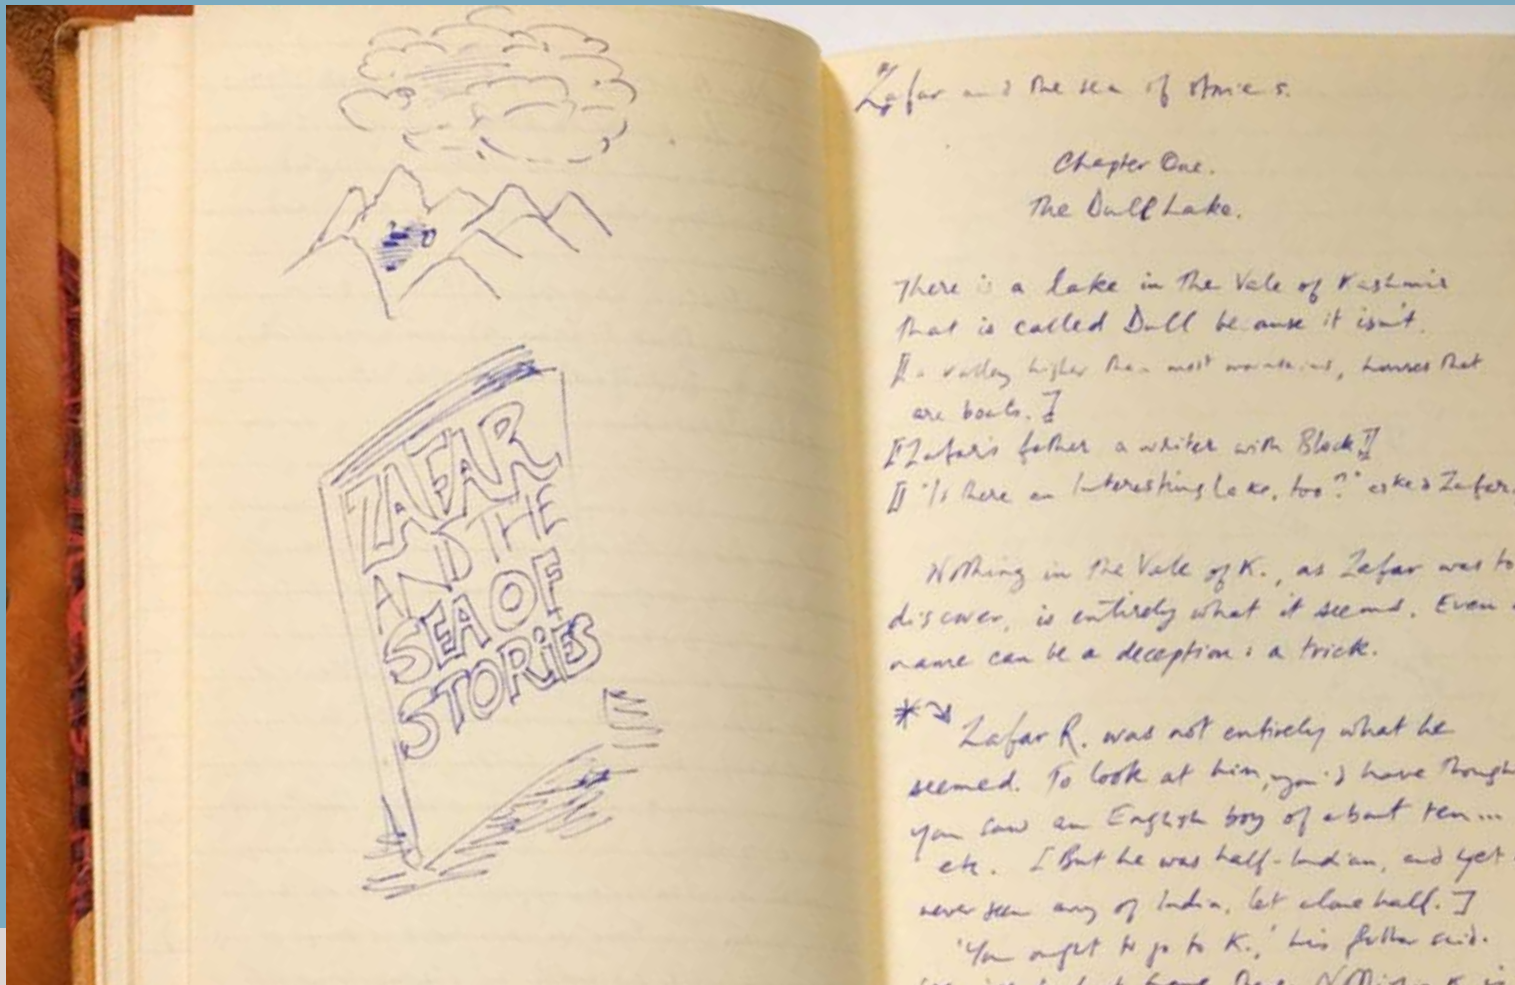 ZAFAR
AND THE
SEA OF
STORiES
Zafar and the sea of stories.
Chapter One.
The Dull Lake.
There is a lake in the Vale of Kashmir
that is called Dull because it isn't.
[[a valley higher than most mountains, houses that
are boats.]
[[Zafar's father a writer with Block]]
[["Is there an Interesting Lake, too?" asked Zafar.
Nothing in the Vale of K., as Zafar was to
discover, is entirely what it seems. Even a
name can be a deception: a trick.
* Zafar R. was not entirely what he
seemed. To look at him, you'd have though
you saw an English boy of about ten...
etc. [But he was half-Indian, and yet
never seen any of India, let alone half.]
'You ought to go to K.,' his father said.